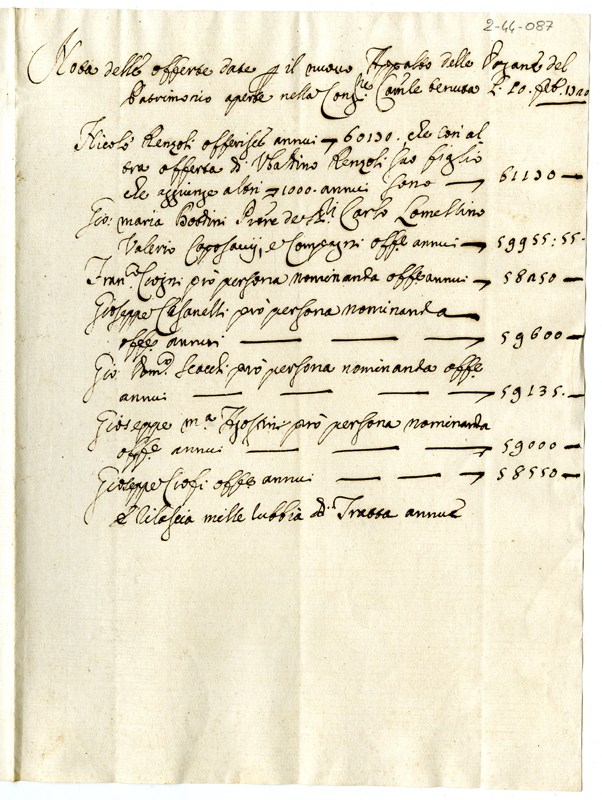 2-44-087
Nota delle offerte date p il nuovo Appalto delle Dogane del
Patrimonio aperte nella Congne Camle tenuta li 20. feb.
Nicolò Renzoli offerisce annui 60130. che con al
tra offerta di Ubaldino Renzoli suo figlio
che aggiunge altri 1000. annui sono 61130
Gio: maria Bottini Carlo Lomellino
Valerio e Compagni offe annui 59955:55
Franco Ciogni prò persona nominanda offe annui
Gioseppe Casanelli prò persona nominanda
offe annui 59600
Gio: Domco Scacchi prò persona nominanda offe
annui 59135.
Gioseppe Ma Agostini prò persona nominanda
offe annui 59000
Gioseppe Ciofi offe annui 58550
e rilascia mille rubbia di Tratta annue